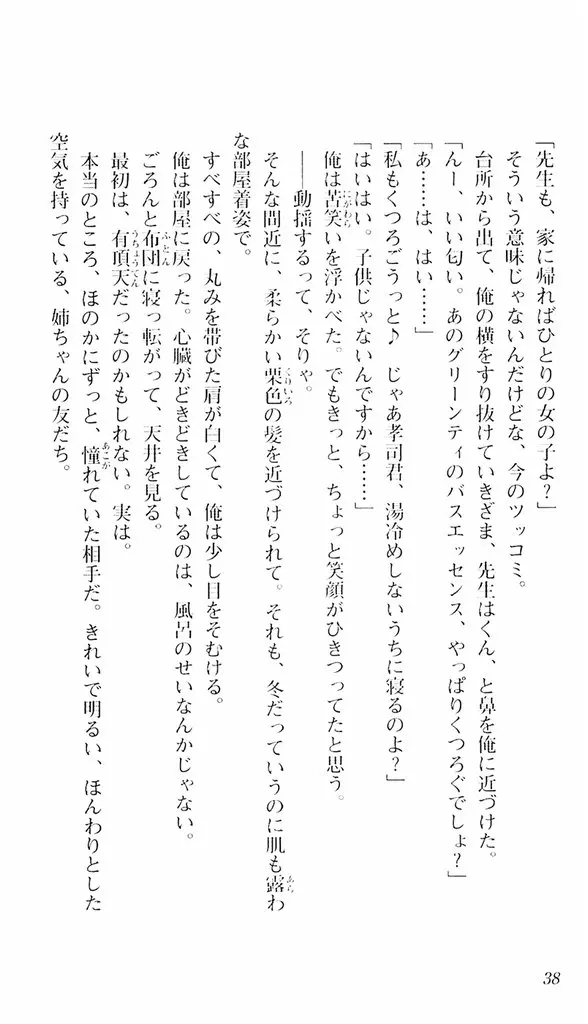 「先生も、家に帰ればひとりの女の子よ？」
そういう意味じゃないんだけどな、今のツッコミ。
台所から出て、俺の横をすり抜けていきざま、先生はくん、と鼻を俺に近づけた。
「んー、いい匂い。あのグリーンティのバスエッセンス、やっぱりくつろぐでしょ？」
「あ……は、はい……」
「私もくつろごうっと♪　じゃあ孝司君、湯冷めしないうちに寝るのよ？」
「はいはい。子供じゃないんですから……」
俺は苦笑いを浮かべた。でもきっと、ちょっと笑顔がひきつってたと思う。
――動揺するって、そりゃ。
そんな間近に、柔らかい栗色の髪を近づけられて。それも、冬だっていうのに肌も露わ
な部屋着姿で。
すべすべの、丸みを帯びた肩が白くて、俺は少し目をそむける。
俺は部屋に戻った。心臓がどきどきしているのは、風呂のせいなんかじゃない。
ごろんと布団に寝っ転がって、天井を見る。
最初は、有頂天だったのかもしれない。実は。
本当のところ、ほのかにずっと、憧れていた相手だ。きれいで明るい、ほんわりとした
空気を持っている、姉ちゃんの友だち。
38